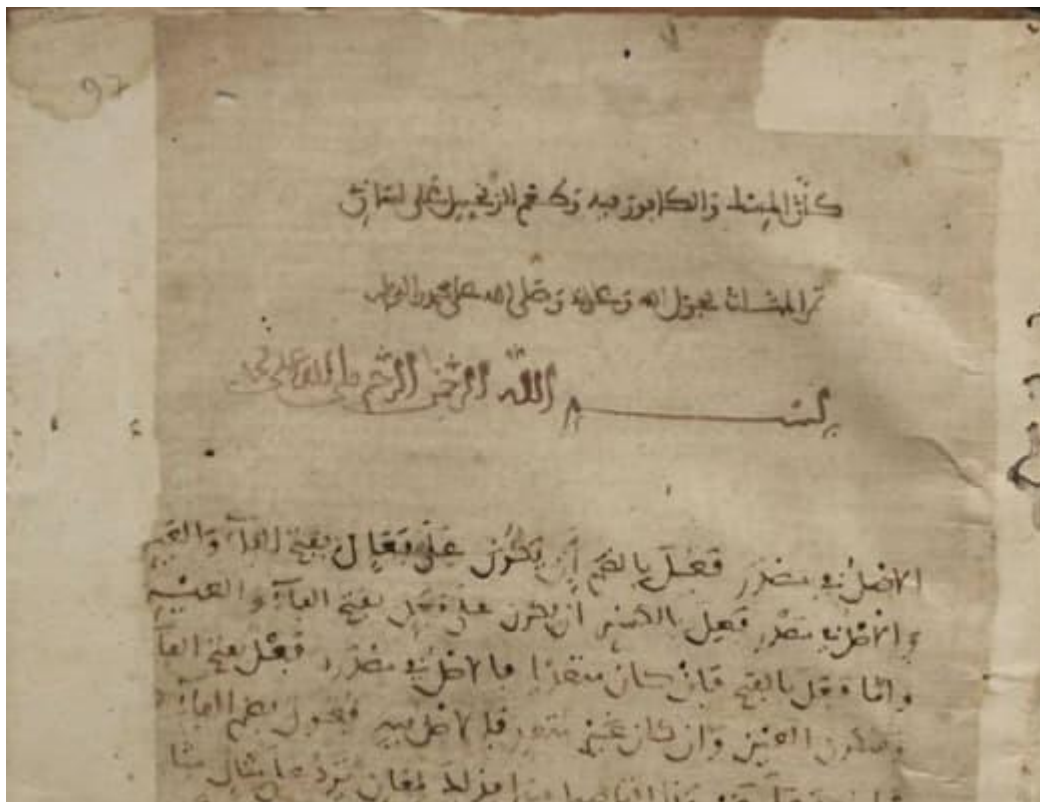 97
كأن المسك والكافور فيه وطعم الزنجبيل على
تم المثلث بحول الله وعونه وصلى الله على محمد واله
بسم الله الرحمن الرحيم صلى الله على محمد
الاصل في مصدر فعل بالضم ان يكون على فعال بفتح الفاء والعين
والاصل في مصدر فعل بالكسر ان يكون على فعل بفتح الفاء والعين
واما فعل بالفتح فان كان متعديا فالاصل في مصدره فعل بفتح الفاء
وسكون العين وان كان غير متعد فالاصل فيه فعول بضم الفاء